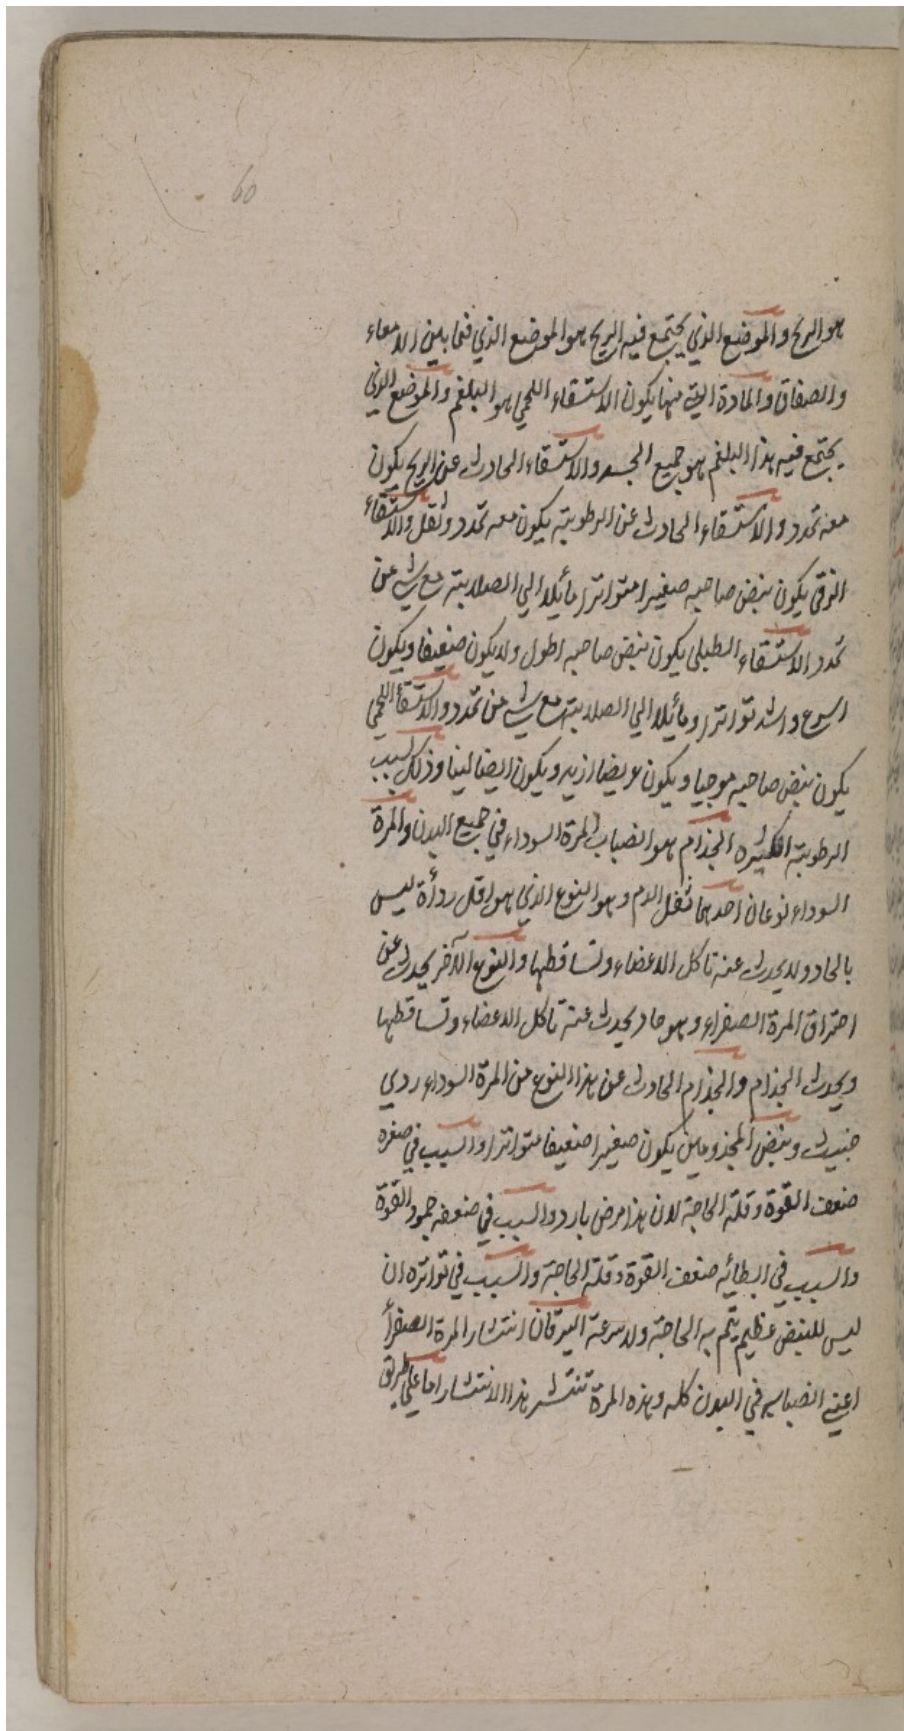 60
هو الريح والموضع الذي يجتمع فيه الريح هو الموضع الذي فيما بين الامعاء
والصفاق والمادة التي منها يكون الاستسقاء اللحمي هو البلغم والموضع الذي
يجتمع فيه هذا البلغم هو جميع الجسد والاستسقاء الحادث عن الريح يكون
معه تمدد والاستسقاء الحادث عن الرطوبة يكون معه تمدد وثقل والاستسقاء
الزقي يكون نبض صاحبه صغيرا متواترا مائلا الي الصلابة مع شي من
تمدد الاستسقاء الطبلي يكون نبض صاحبه اطول ولا يكون ضعيفا ويكون
اسرع واشد تواترا ومائلا الي الصلابة مع شي من تمدد والاستسقاء اللحمي
يكون نبض صاحبه موجيا ويكون عريضا ازيد ويكون ايضا لينا وذلك لسبب
الرطوبة الكثيره الجذام هو انصباب المرة السوداء في جميع البدن والمرة
السوداء نوعان احدهما ثفل الدم وهو النوع الذي هو اقل ردأة ليس
بالحاد ولا يحدث عنه تاكل الاعضاء وتساقطها والنوع الآخر يحدث عن
احتراق المرة الصفراء وهو حاد يحدث عنه تاكل الاعضاء وتساقطها
ويحدث الجذام والجذام الحادث عن هذا النوع من المرة السوداء ردي
خبيث ونبض المجذومين يكون صغيرا ضعيفا متواترا والسبب في صغره
ضعف القوة وقلة الحاجة لان هذا مرض بارد والسبب في ضعفه جمود القوة
والسبب في ابطائه ضعف القوة وقلة الحاجة والسبب في تواتره ان
ليس للنبض عظيم يتم به الحاجة ولا سرعة اليرقان انتشار المرة الصفرأ
اعني انصبابه في البدن كله وهذه المرة تنتشر هذا الانتشار اما علي طريق